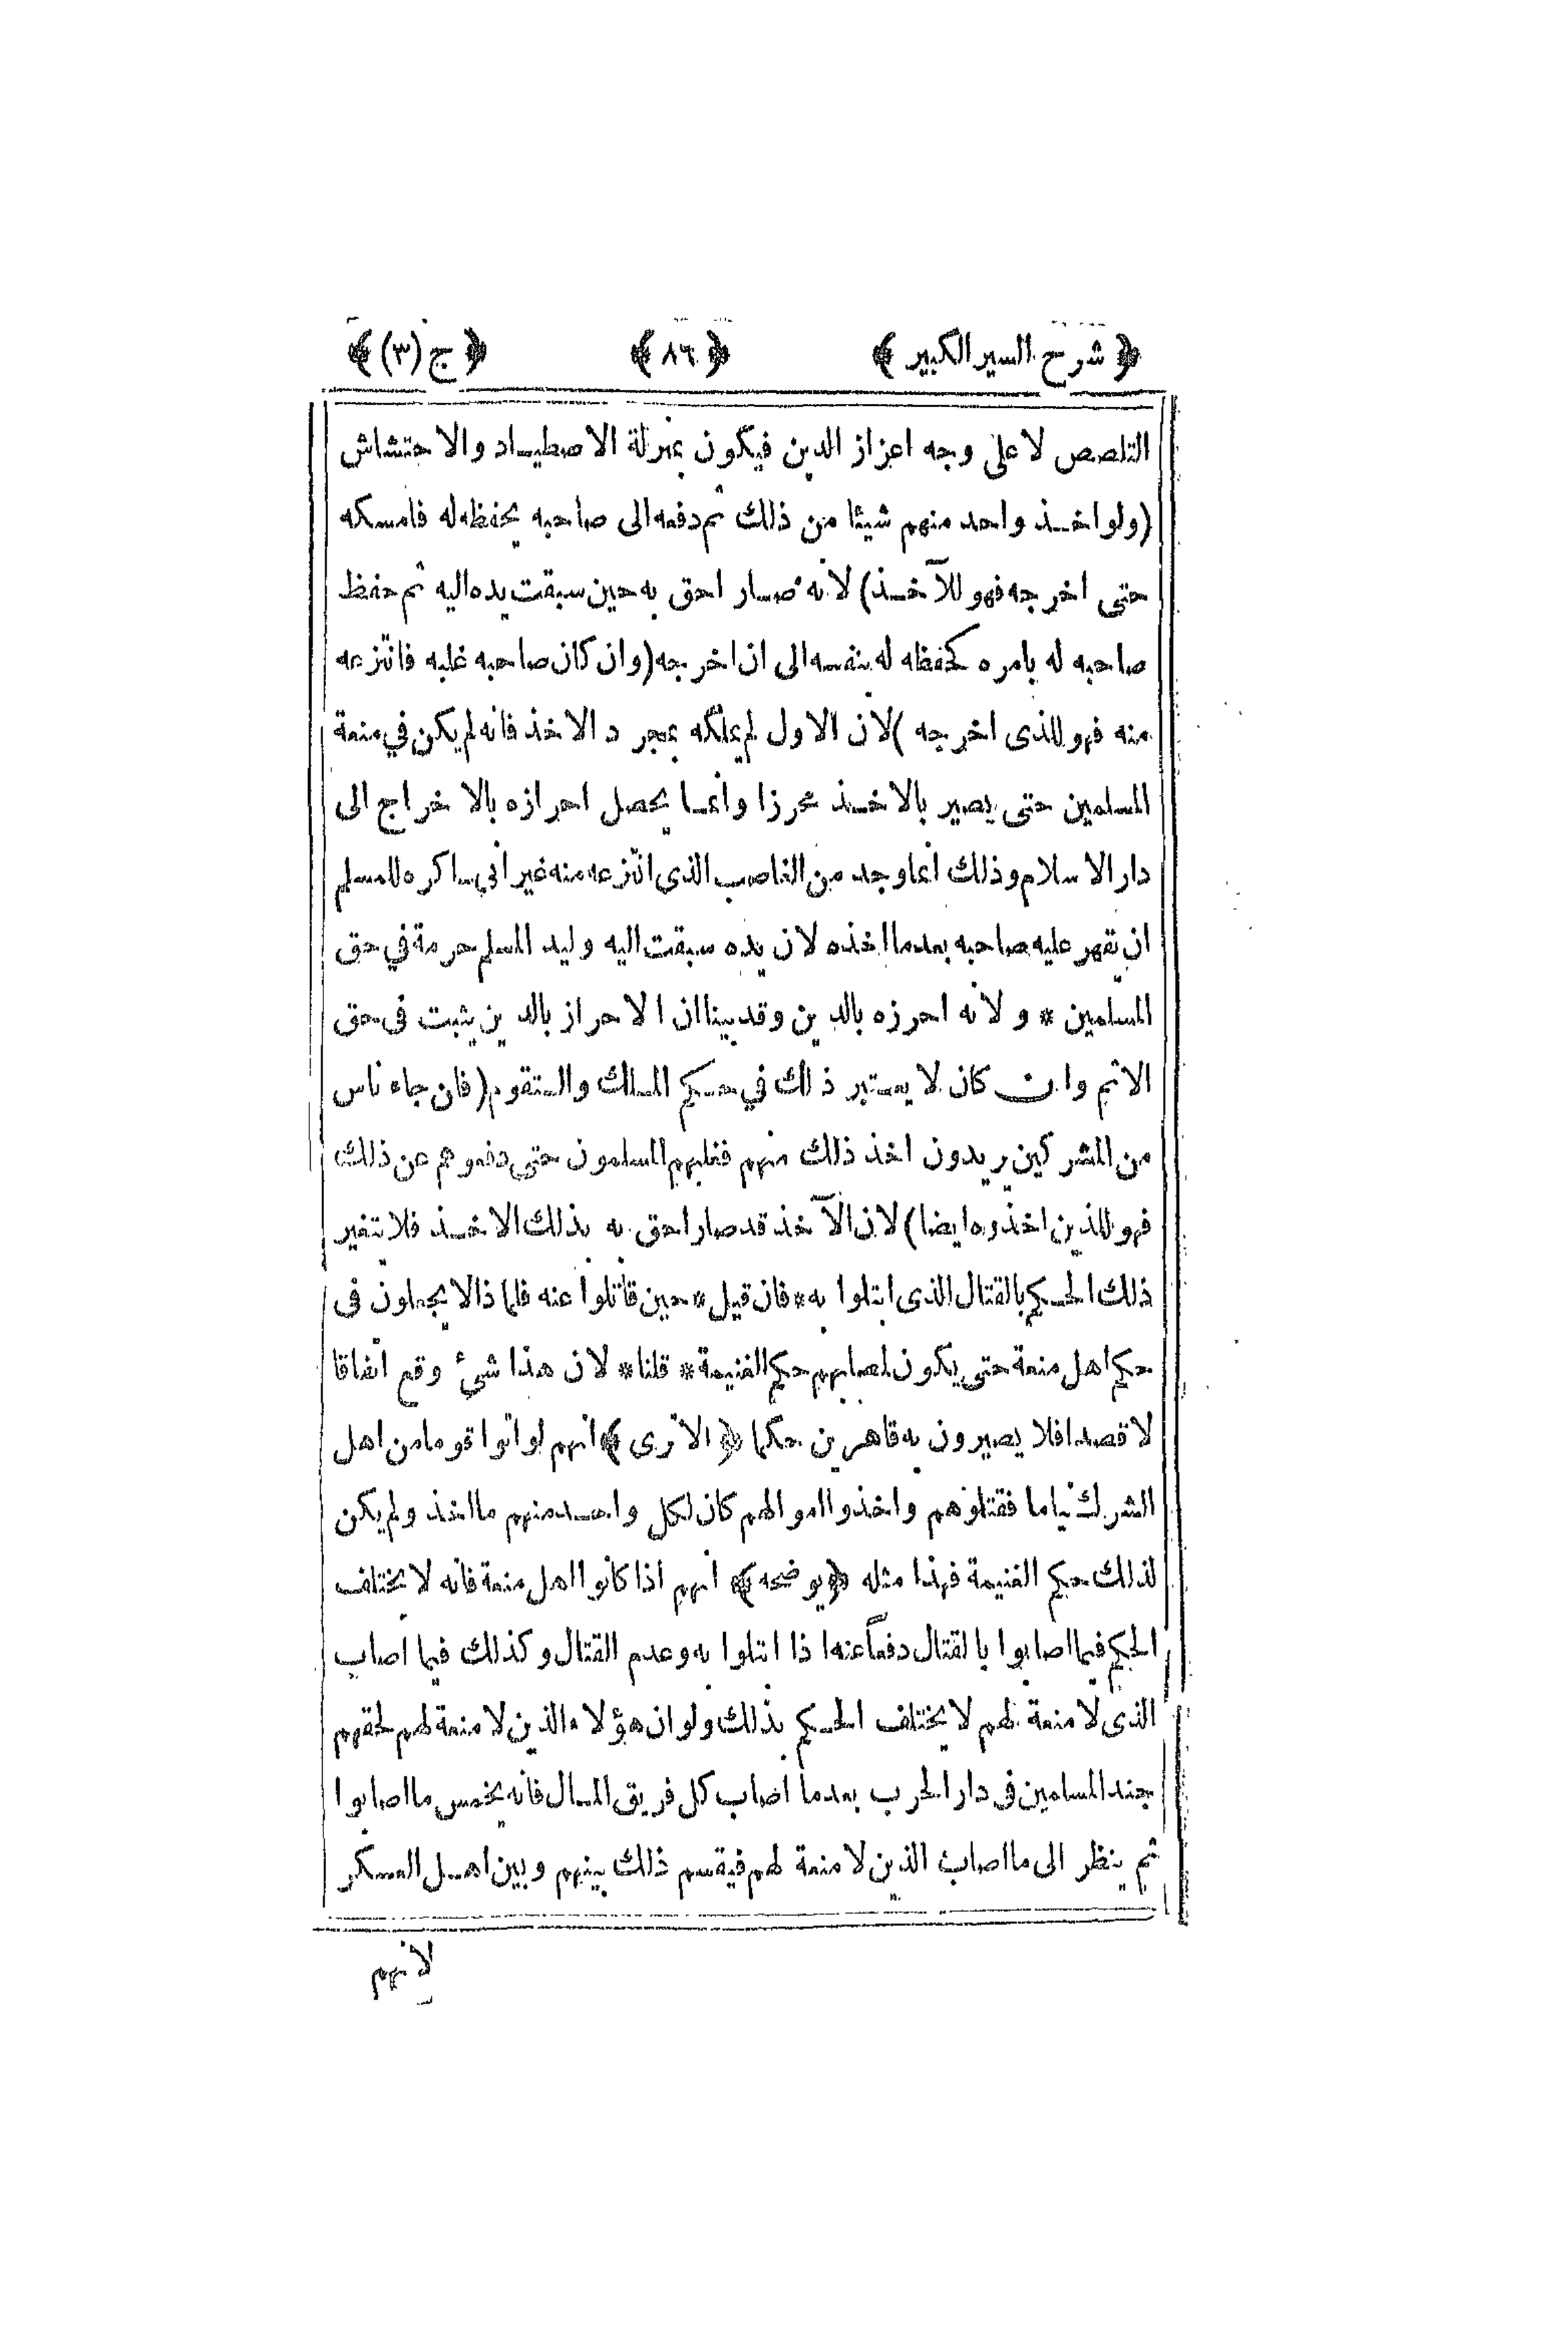 ﴿ شرح السير الكبير ﴾ ﴿ ٨٦ ﴾ ﴿ ج (٣) ﴾
التلصص لا على وجه اعزاز الدين فيكون بمنزلة الاصطياد والاحتشاش
(ولو اخذ واحد منهم شيئا من ذلك ثم دفعه الى صاحبه يحفظه له فامسكه
حتى اخرجه فهو للآخذ) لانه صار احق به حين سبقت يده اليه ثم حفظ
صاحبه له بامره كحفظه له بنفسه الى ان اخرجه (وان كان صاحبه غلبه فانتزعه
منه فهو للذى اخرجه) لان الاول لم يملكه بمجرد الاخذ فانه لم يكن في منعة
المسلمين حتى يصير بالاخذ محرزا وانما يحصل احرازه بالاخراج الى
دار الاسلام وذلك انما وجد من الغاصب الذى انتزعه منه غير انى اكره للمسلم
ان يقهر عليه صاحبه بعدما اخذه لان يده سبقت اليه وليد المسلم حرمة في حق
المسلمين * ولانه احرزه بالدين وقد بينا ان الاحراز بالدين يثبت فى حق
الاثم وان كان لا يعتبر ذلك في حكم الملك والتقوم (فان جاء ناس
من المشركين يريدون اخذ ذلك منهم فغلبهم المسلمون حتى دفعوهم عن ذلك
فهو للذين اخذوه ايضا) لان الآخذ قد صار احق به بذلك الاخذ فلا يتغير
ذلك الحكم بالقتال الذى ابتلوا به * فان قيل * حين قاتلوا عنه فلما ذا لا يجعلون فى
حكم اهل منعة حتى يكون لمصابهم حكم الغنيمة * قلنا * لان هذا شئ وقع اتفاقا
لا قصدا فلا يصيرون به قاهرين حكما ﴿ الا ترى ﴾ انهم لو اتوا قوما من اهل
الشرك نياما فقتلوهم واخذوا اموالهم كان لكل واحد منهم ما اخذ ولم يكن
لذلك حكم الغنيمة فهذا مثله ﴿ يوضحه ﴾ انهم اذا كانوا اهل منعة فانه لا يختلف
الحكم فيما اصابوا بالقتال دفعاً عنه اذا ابتلوا به وعدم القتال وكذلك فيما اصاب
الذى لا منعة لهم لا يختلف الحكم بذلك ولو ان هؤلاء الذين لا منعة لهم لحقهم
جند المسلمين فى دار الحرب بعدما اصاب كل فريق المال فانه يخمس ما اصابوا
ثم ينظر الى ما اصاب الذين لا منعة لهم فيقسم ذلك بينهم وبين اهل العسكر
لانهم